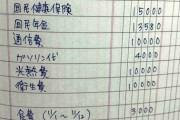 国民健康保険 15000
国民年金 13580
通信費 10000
ガソリン代 4000
光熱費 10000
衛生費 10000
食費 (1/1~1/12) 3000